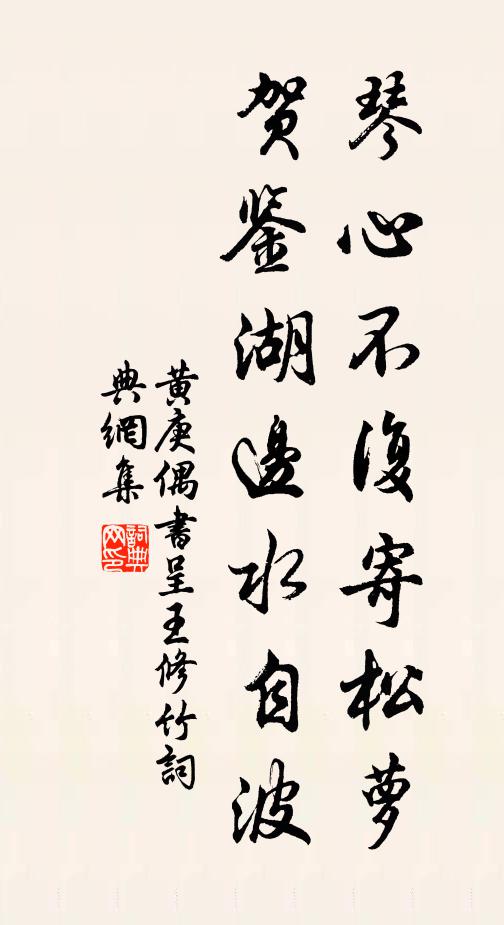 琴心不復寄松夢
賀鉴湖邊水自波
黃庚偶書呈王修竹詞
典網集
詞典網印